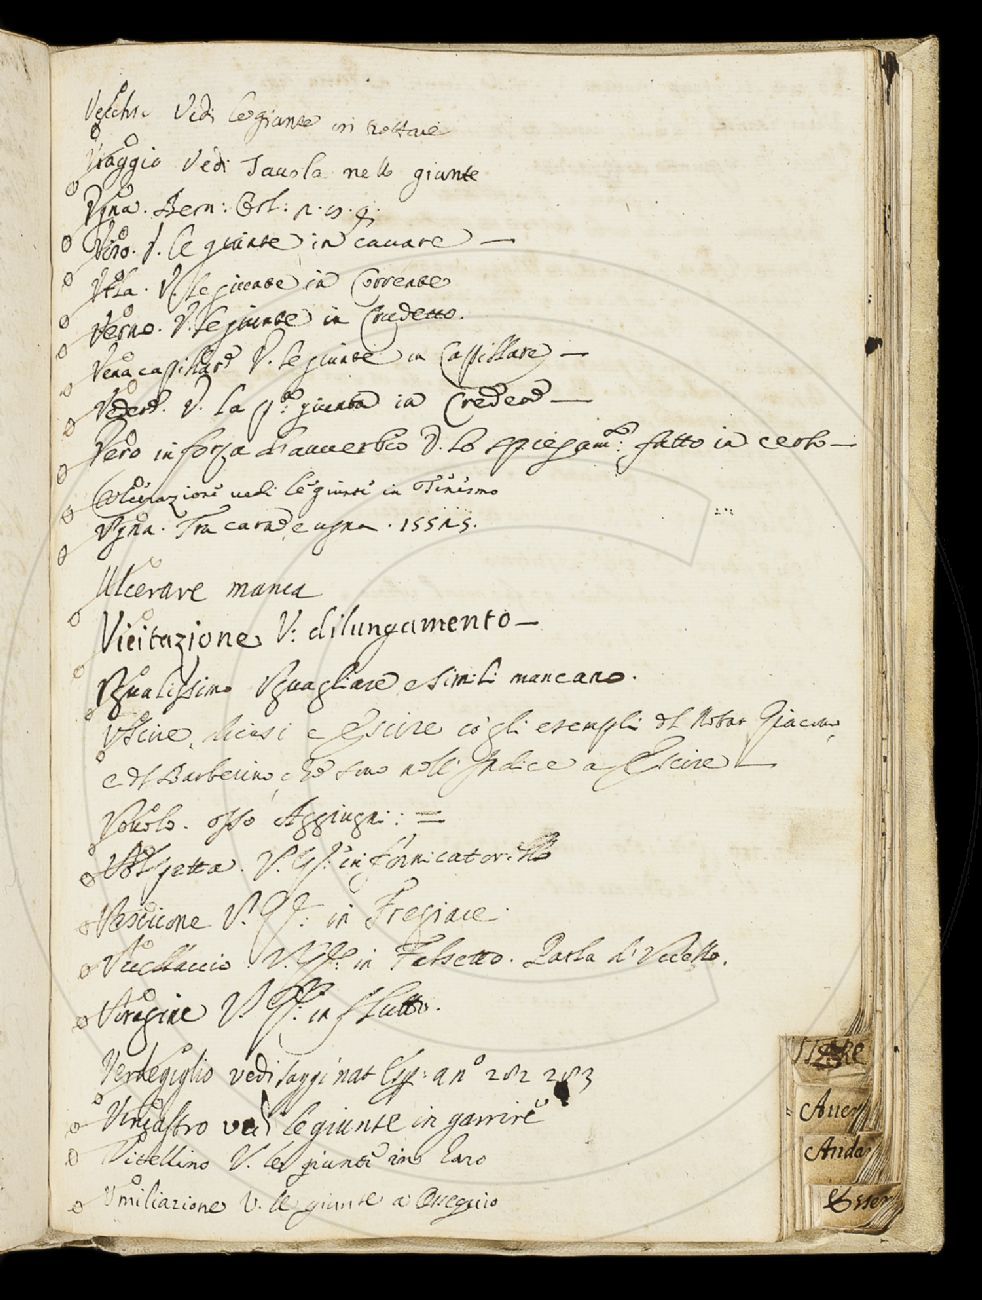 Vecchi. Vedi le giunte in trottare
Viaggio Vedi Tavola nelle giunte
Vgna. Bern: Orl: 
Vero. V. le giunte in cavare —
V. le giunte in Corrente
Verno. V. le giunte in Credetto.
Vena capillare V. le giunte in Capillare —
Vedere. V. la pa. giunta in Credere —
Vero in forza d'auuerbio V. lo spiegamto: fatto in certo —
vedi le giunte in
Vgna. Tra carne e ugna. 
Ulcerare manca
Vicitazione V: dilungamento —
Vgualissimo Vguagliare e simili mancano.
Uscire, dicesi e Escire cogli esempli del Notar Giacomo,
e del Barberino, che sono nell' Indice a Escire —
osso Aggiugni: =
Volpetta. V. in fornicator:
Vescicone V. in Fregiare.
Vecchiaccio. V. in Falsetto. Parla di
Voragine V. in flutto.
Verdegiglio vedi saggi nat. Esp: a no 282 283
Vincastro vedi le giunte in garrire
Vitellino V. le giunte in
Vmiliazione V. le giunte a Ossequio
Auer
Anda
Esser